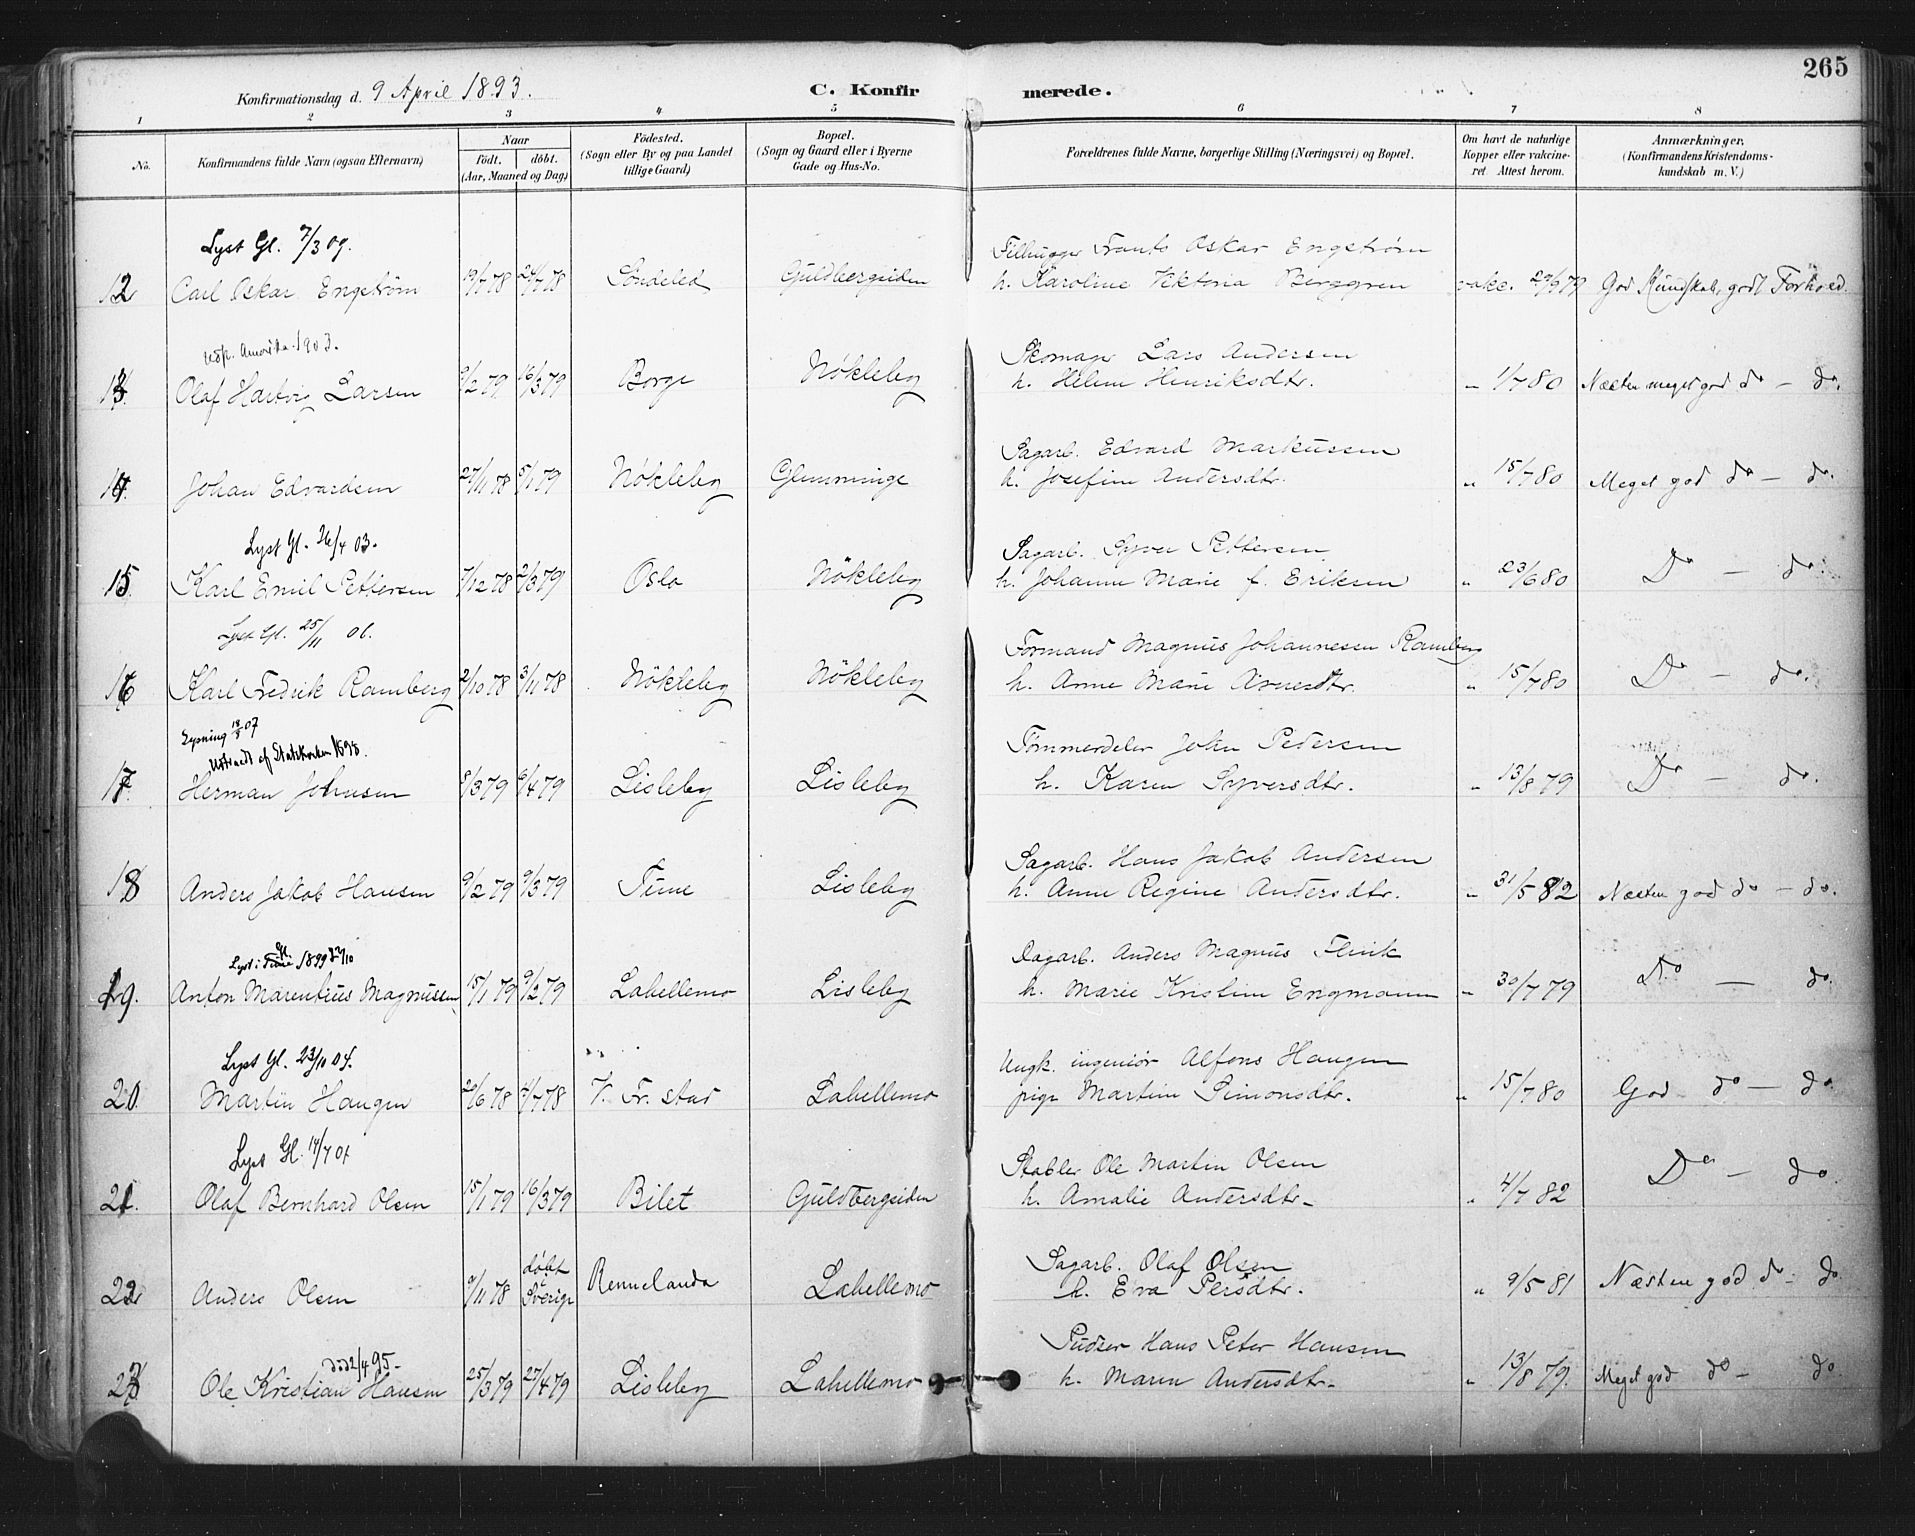 265
Konfirmationsdag d. 9 April 1893. C. Konfirmerede.
1 2 3 4 5 6 7 8
No. Konfirmandens fulde Navn (ogsaa Efternavn) Naar født. døbt. (Aar, Maaned og Dag) Fødested. (Sogn eller By og paa Landet tillige Gaard) Bopæl. (Sogn og Gaard eller i Byerne Gade og Hus-No. Forældrenes fulde Navne, borgerlige Stilling (Næringsvei) og Bopæl. Om havt de naturlige Kopper eller vakcineret Attest herom. Anmærkninger. (Konfirmandens Kristendomskundskab m. V.)
Lyst Gl. 7/3 09. Frants Oskar Engstrøm
12 Carl Oskar Engstrøm 19/7 78 24/7 78 Søndeled Guldbergsiden h. Karoline Viktoria Berggren vakc. 29/9 79 God Kundskab, godt Forhold.
Udfl. Amerika 1903. Skomager Lars Andersen
13. Olaf Hartvig Larsen 9/2 79 16/3 79 Borge Nøkleby h. Helene Henriksdtr. " 1/7 80 Næsten meget god do — do.
Sagarb. Edvard Markussen
14. Johan Edvardsen 27/11 78 5/1 79 Nøkleby Glemminge h. Josefine Andersdtr. " 15/7 80 Meget god do — do.
Lyst Gl. 26/4 03. Sagarb. Syver Pettersen
15 Karl Emil Pettersen 7/12 78 2/3 79 Oslo Nøkleby h. Johanne Marie f. Eriksen " 23/6 80 Do — do.
Lyst Gl. 25/11 01. Formand Magnus Johannesen Ramberg
16 Karl Fredrik Ramberg 2/10 78 3/11 78 Nøkleby Nøkleby h. Anne Marie " 15/7 80 Do — do.
Lysning 07
Udtraadt af Statskirken 1898. Tømmerdeler John Pedersen
17. Herman Johnsen 8/3 79 6/4 79 Lisleby Lisleby h. Karen Syversdtr. " 13/8 79 Do — do.
Sagarb. Hans Jakob Andersen
18 Anders Jakob Hansen 9/2 79 9/3 79 Tune Lisleby h. Anne Regine Andersdtr. " 31/5 82 Næsten god do — do.
Lyst i Tune 1899 Dagarb. Anders Magnus
19. Anton Marentius Magnussen 15/1 79 9/2 79 Lahellemo Lisleby h. Marie Kristine Engmann " 30/7 79 Do — do.
Lyst Gl. 23/10 04. Ungk. ingeniør Alfons Haugen
20. Martin Haugen 20/6 78 4/7 78 V. Fr.stad Lahellemo pige Martine Simonsdtr. " 15/7 80 God do — do
Lyst Gl. 14/7 01 Stabler Ole Martin Olsen
21. Olaf Bernhard Olsen 15/1 79 16/3 79 Bilet Guldbergsiden h. Amalie Andersdtr. " 4/7 82 Do — do.
Sagarb. Olaf Olsen
22 Anders Olsen 9/11 78 døbt i Sverige Rennelanda Lahellemo h. Eva Persdtr. " 9/5 81 Næsten god do — do.
død 2/4 95. Pudser Hans Peter Hansen
23 Ole Kristian Hansen 25/3 79 27/4 79 Lisleby Lahellemo h. Maren Andersdtr. " 13/8 79. Meget god do — do